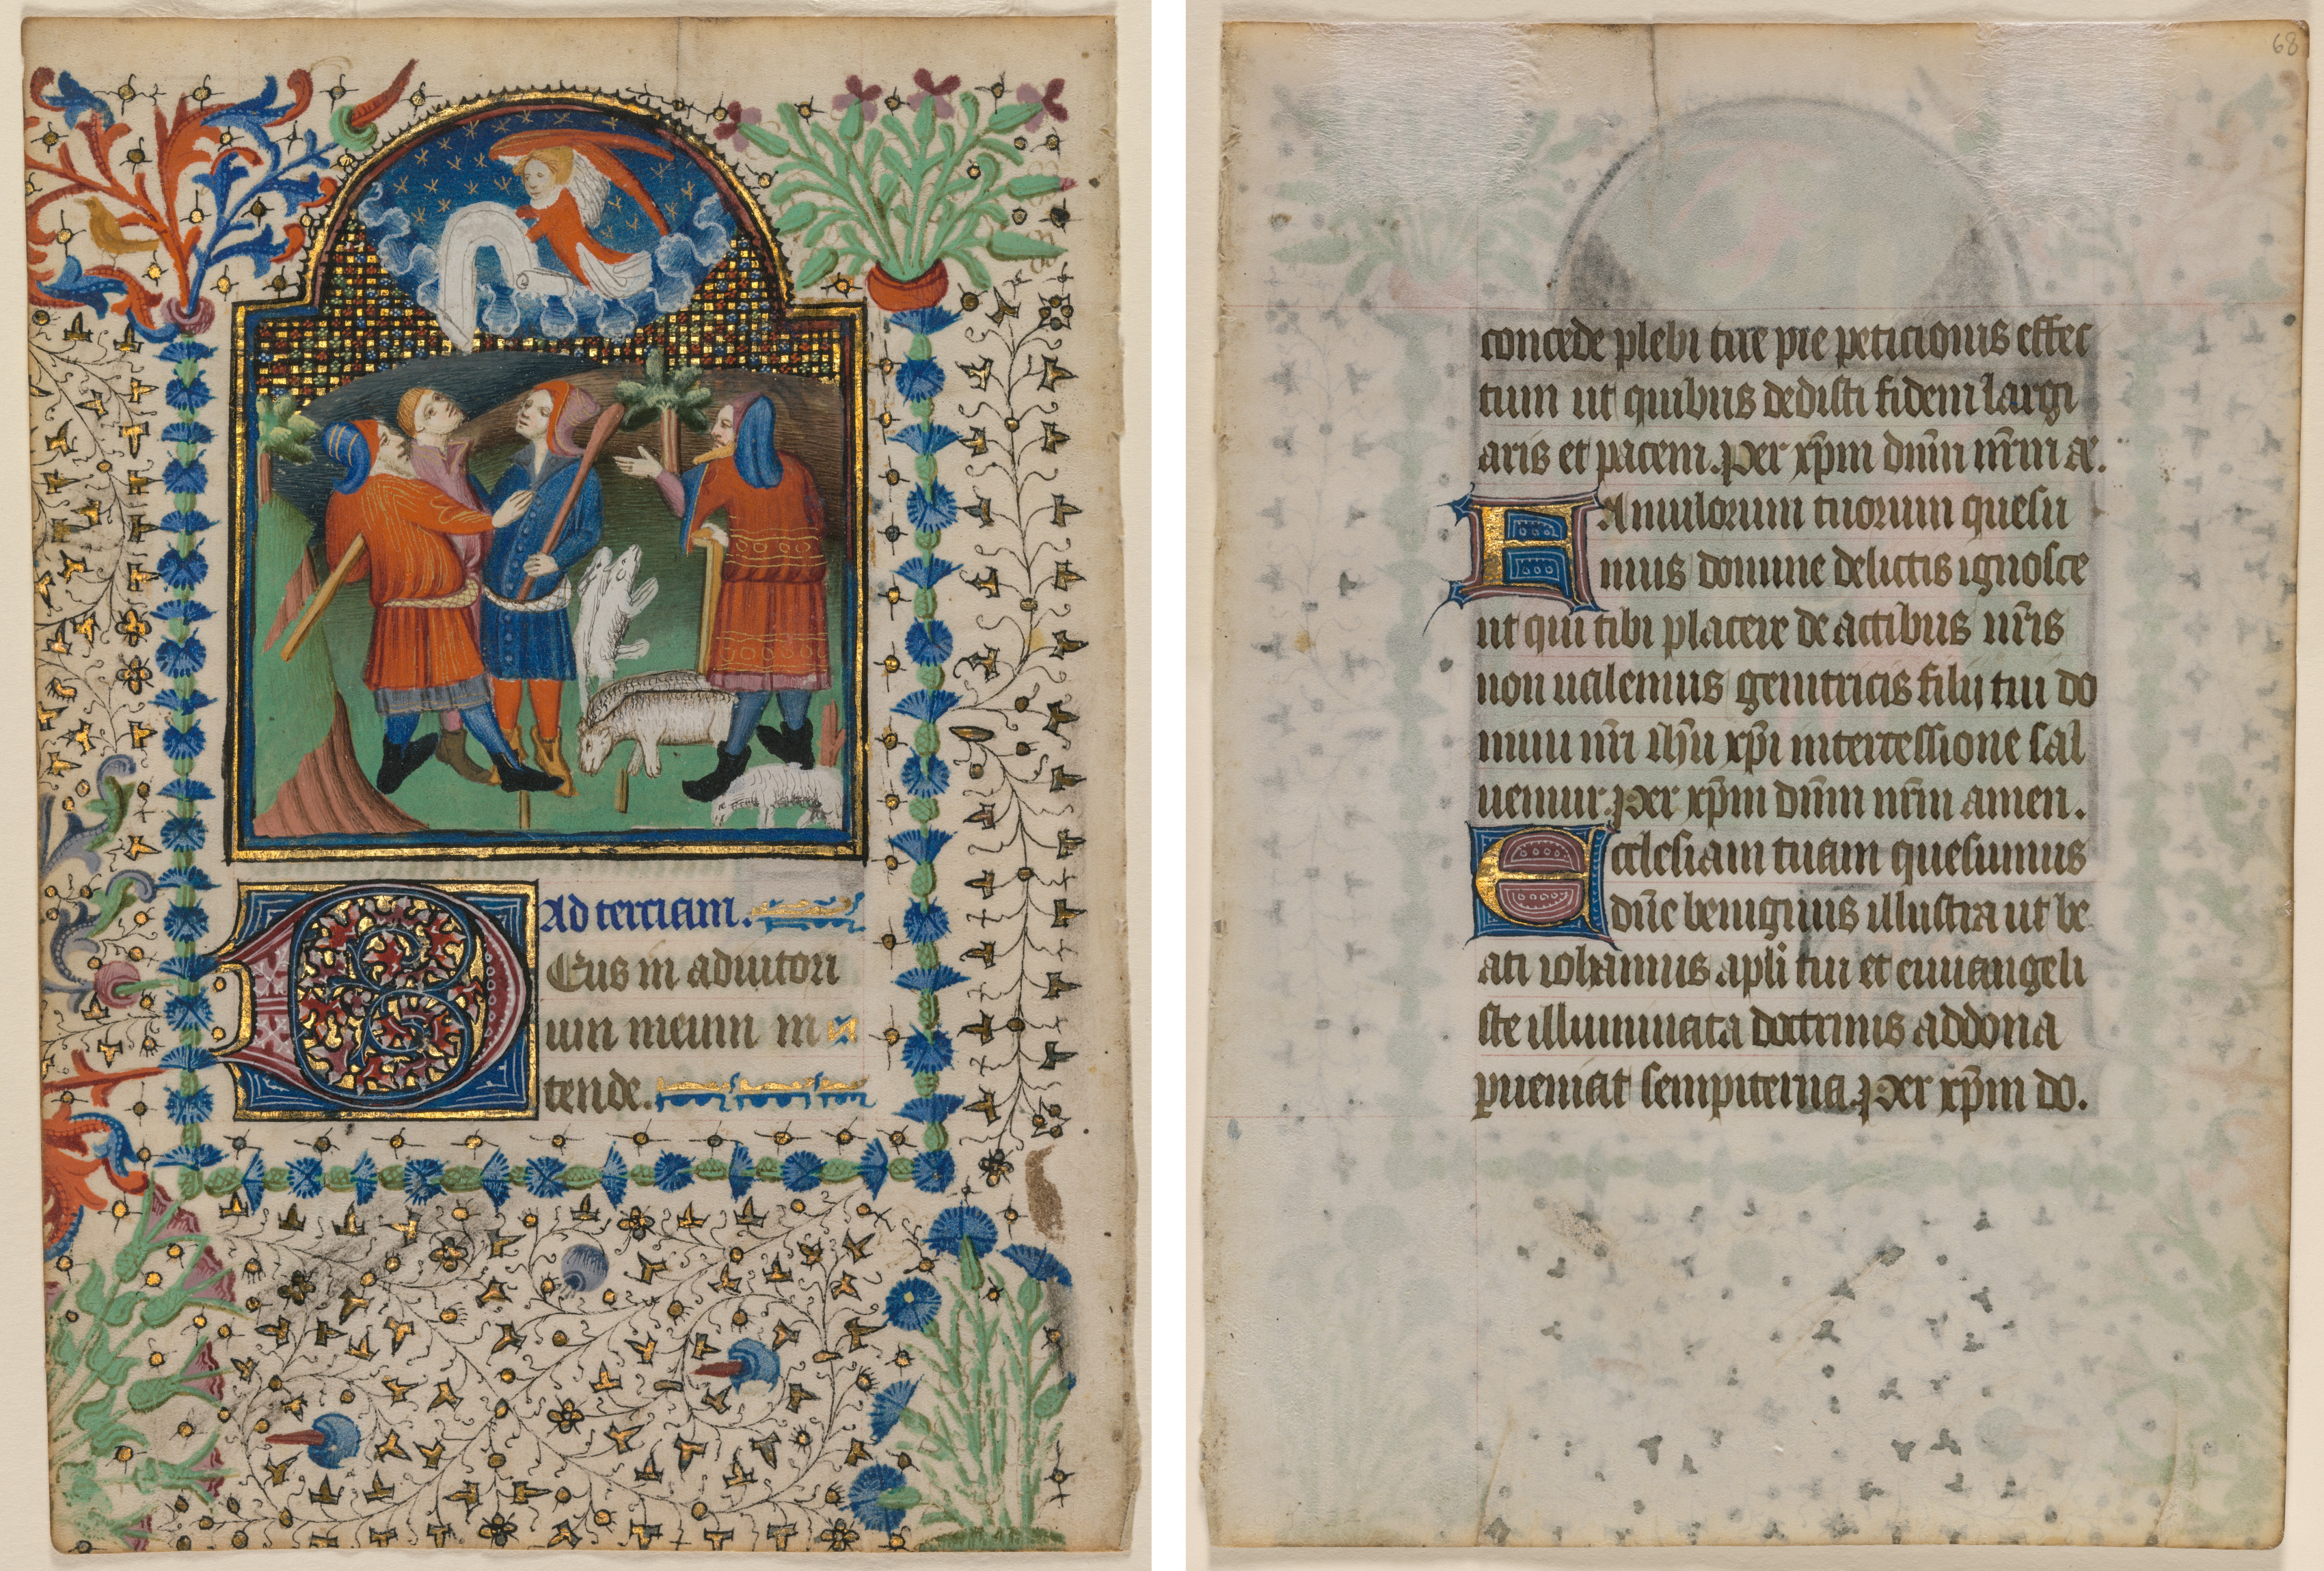 Ad terciam.
Eus in adiutori
um meum in
tende.
68
concede plebi tue pie peticionis effec
tum ut quibus dedisti fidem largi
aris et pacem. Per xp̄m dnm̄ nrm̄ &.
FAmulorum tuorum quesu
mus domine delictis ignosce
ut qui tibi placere de actibus nr̄is
non ualemus genitricis filij tui do
mini nr̄i ih̄u xp̄i intercessione sal
uemur. Per xp̄m dnm̄ nrm̄ amen.
Ecclesiam tuam quesumus
dn̄e benignus illustra ut be
ati iohannis apl̄i tui et euuangeli
ste illuminata doctrinis ad dona
ꝑueniat sempiterna. Per xp̄m do.